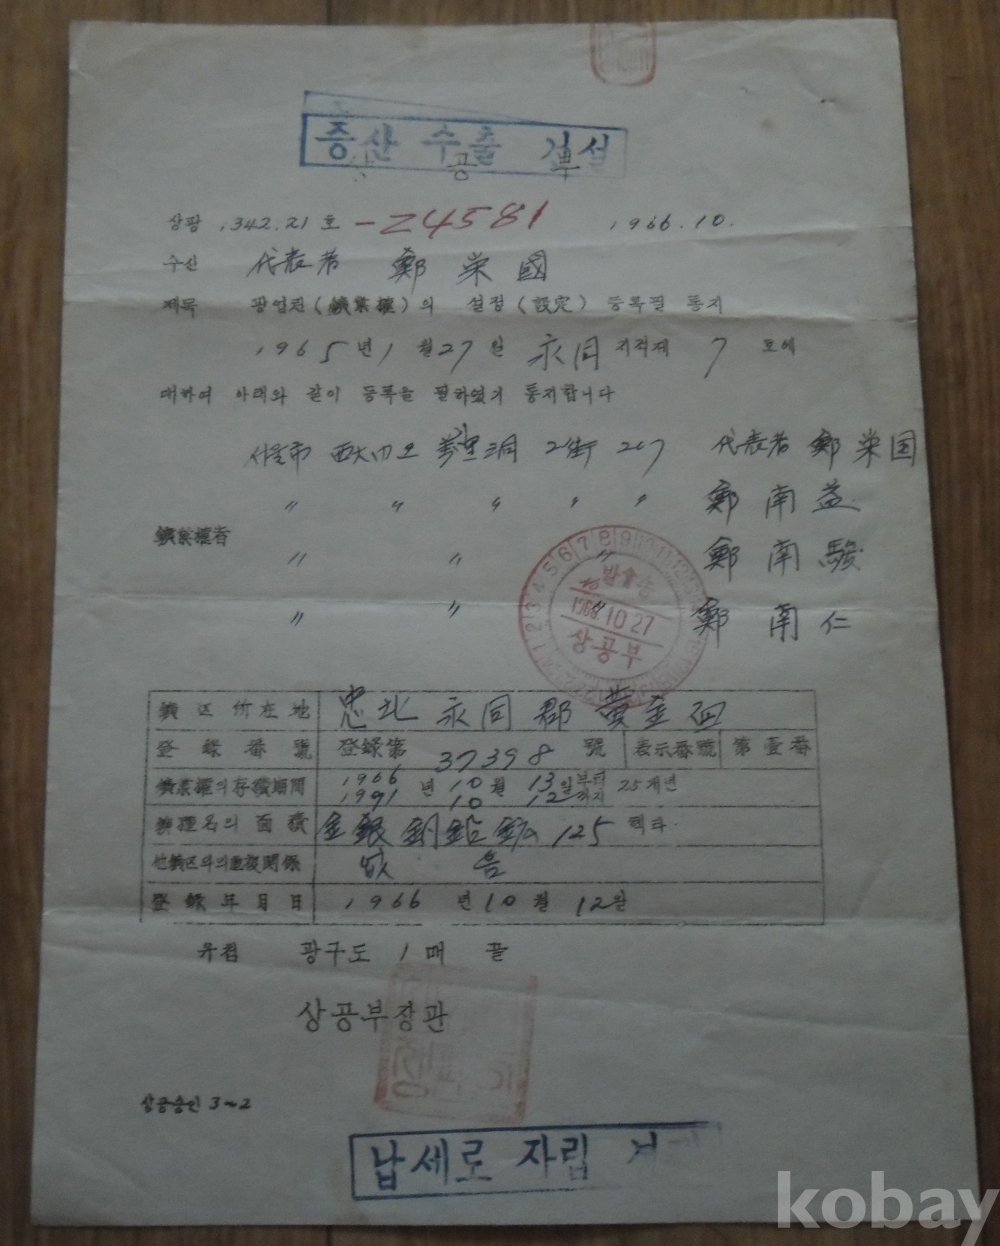 증산 수출 건설
상 공 부
상광 1342.21 호 -24581 1966.10.
수신 代表者 鄭 榮 國
제목 광업권(鑛業權)의 설정(設定) 등록필 통지
1965년 1월 27일 永同 지적제 7 호에
대하여 아래와 같이 등록을 필하였기 통지합니다
서울市 西大門区 3洞 2街 207 代表者 鄭 榮国
〃 〃 〃 〃 〃 鄭 南 益
鑛業權者
〃 〃 〃 鄭 南 駿
〃 〃 〃 鄭 南 仁
1 2 3 4 5 6 7 8 9 10 11 12
발송
1966 10 27
상공부
鑛区所在地 忠北 永同郡 黄金面
登錄番號 登錄第 37398 號 表示番號 第壹番
鑛業權의存續期間 1966 년 10 월 13 일부터 25개년
1991 10 12 까지
鑛種名의 面積 金銀銅鉛鉱 125 헥타
他鑛区와의重複関係 없 음
登錄年月日 1966 년 10 월 12일
유첨 광구도 1 매 끝
상공부장관
상공승인 3~2
납세로 자립
kobay